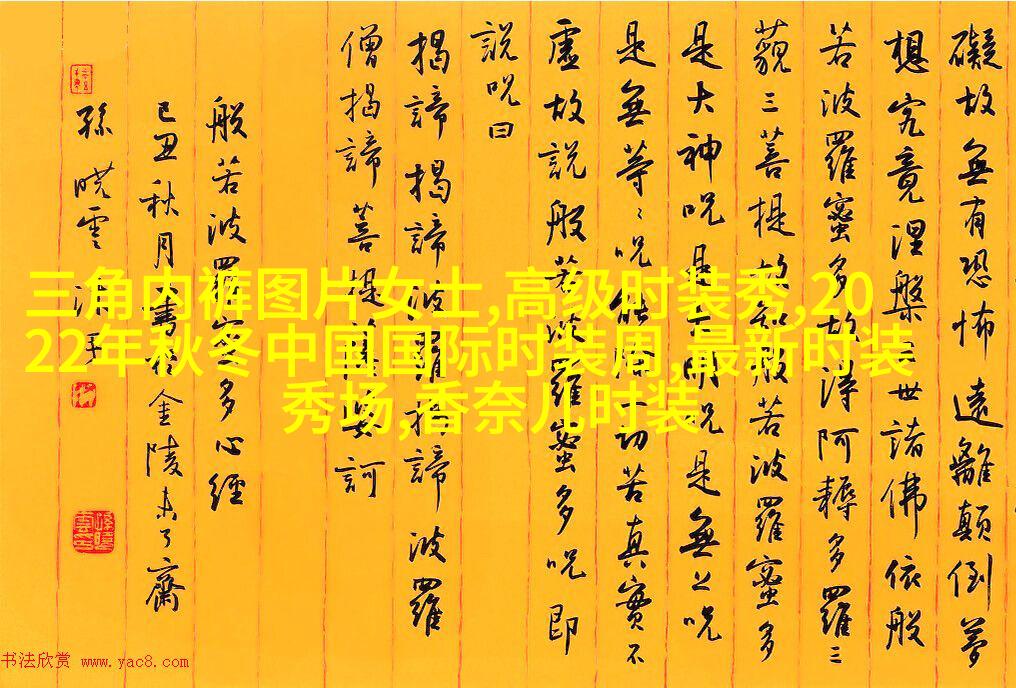 礙故無有恐怖遠離顛倒夢
想究竟涅槃三世諸佛依般
若波羅蜜多故得阿耨多羅三
藐三菩提故知般若波羅蜜多
是大神呪是大明呪是無上呪
是無等〻呪能除一切苦真實不
虛故説般若波羅蜜多呪即
説呪曰
揭諦揭諦波羅揭諦波羅
僧揭諦菩提薩婆訶
般若波羅蜜多心經
己丑秋月書於金陵未了齋
孫曉雲沐手
三角内裤图片女士,高级时装秀,20
22年秋冬中国国际时装周,最新时装
秀场,香奈儿时装
书法欣赏 www.yac8.com